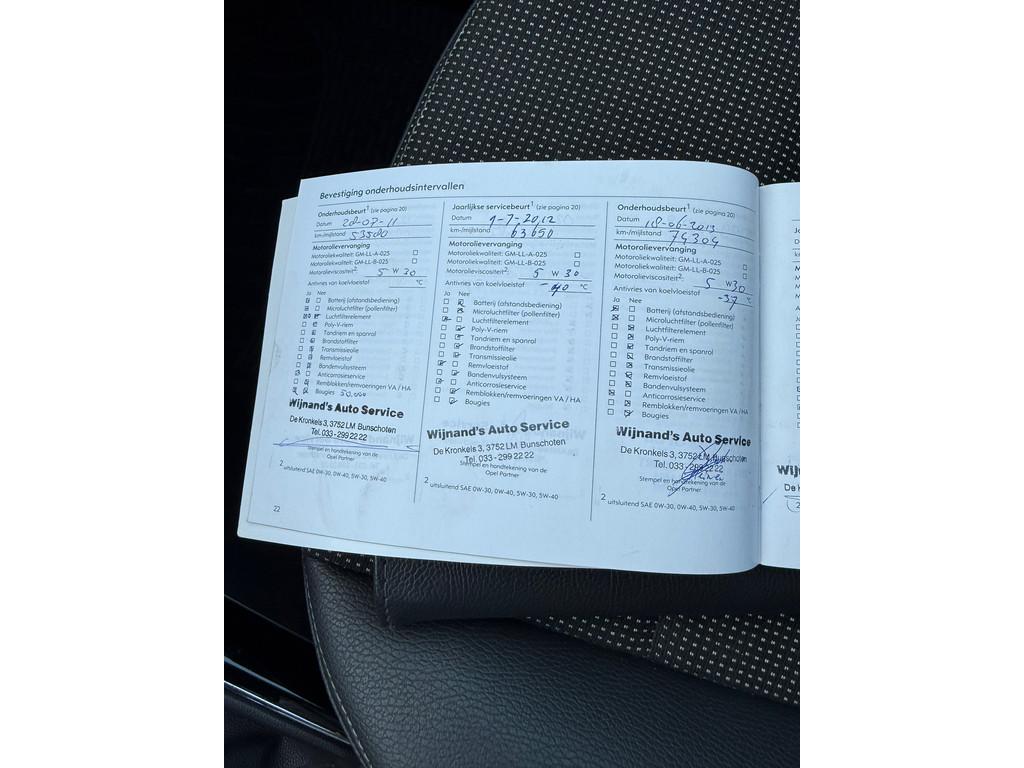 Bevestiging onderhoudsintervallen
Onderhoudsbeurt1 (zie pagina 20)
Datum 28-07-11
km-/mijlstand 53500
Motorolievervanging
Motoroliekwaliteit: GM-LL-A-025
Motoroliekwaliteit: GM-LL-B-025
Motorolieviscositeit2: 5 W 30
Antivries van koelvloeistof °C
Ja Nee
Batterij (afstandsbediening)
Microluchtfilter (pollenfilter)
Luchtfilterelement
Poly-V-riem
Tandriem en spanrol
Brandstoffilter
Transmissieolie
Remvloeistof
Bandenvulsysteem
Anticorrosieservice
Remblokken/remvoeringen VA / HA
Bougies 50,000
Wijnand's Auto Service
De Kronkels 3, 3752 LM Bunschoten
Tel. 033 - 299 22 22
Stempel en handtekening van de
Opel Partner
2 uitsluitend SAE 0W-30, 0W-40, 5W-30, 5W-40
22
Jaarlijkse servicebeurt1 (zie pagina 20)
Datum 9-7-2012
km-/mijlstand 63650
Motorolievervanging
Motoroliekwaliteit: GM-LL-A-025
Motoroliekwaliteit: GM-LL-B-025
Motorolieviscositeit2: 5 W 30
Antivries van koelvloeistof -40 °C
Ja Nee
Batterij (afstandsbediening)
Microluchtfilter (pollenfilter)
Luchtfilterelement
Poly-V-riem
Tandriem en spanrol
Brandstoffilter
Transmissieolie
Remvloeistof
Bandenvulsysteem
Anticorrosieservice
Remblokken/remvoeringen VA / HA
Bougies
Wijnand's Auto Service
De Kronkels 3, 3752 LM Bunschoten
Tel. 033 - 299 22 22
Stempel en handtekening van de
Opel Partner
2 uitsluitend SAE 0W-30, 0W-40, 5W-30, 5W-40
Onderhoudsbeurt1 (zie pagina 20)
Datum 18-06-2013
km-/mijlstand 74304
Motorolievervanging
Motoroliekwaliteit: GM-LL-A-025
Motoroliekwaliteit: GM-LL-B-025
Motorolieviscositeit2: 5 W 30
Antivries van koelvloeistof -37 °C
Ja Nee
Batterij (afstandsbediening)
Microluchtfilter (pollenfilter)
Luchtfilterelement
Poly-V-riem
Tandriem en spanrol
Brandstoffilter
Transmissieolie
Remvloeistof
Bandenvulsysteem
Anticorrosieservice
Remblokken/remvoeringen VA / HA
Bougies
Wijnand's Auto Service
De Kronkels 3, 3752 LM Bunschoten
Tel. 033 - 299 22 22
Stempel en handtekening van de
Opel Partner
2 uitsluitend SAE 0W-30, 0W-40, 5W-30, 5W-40